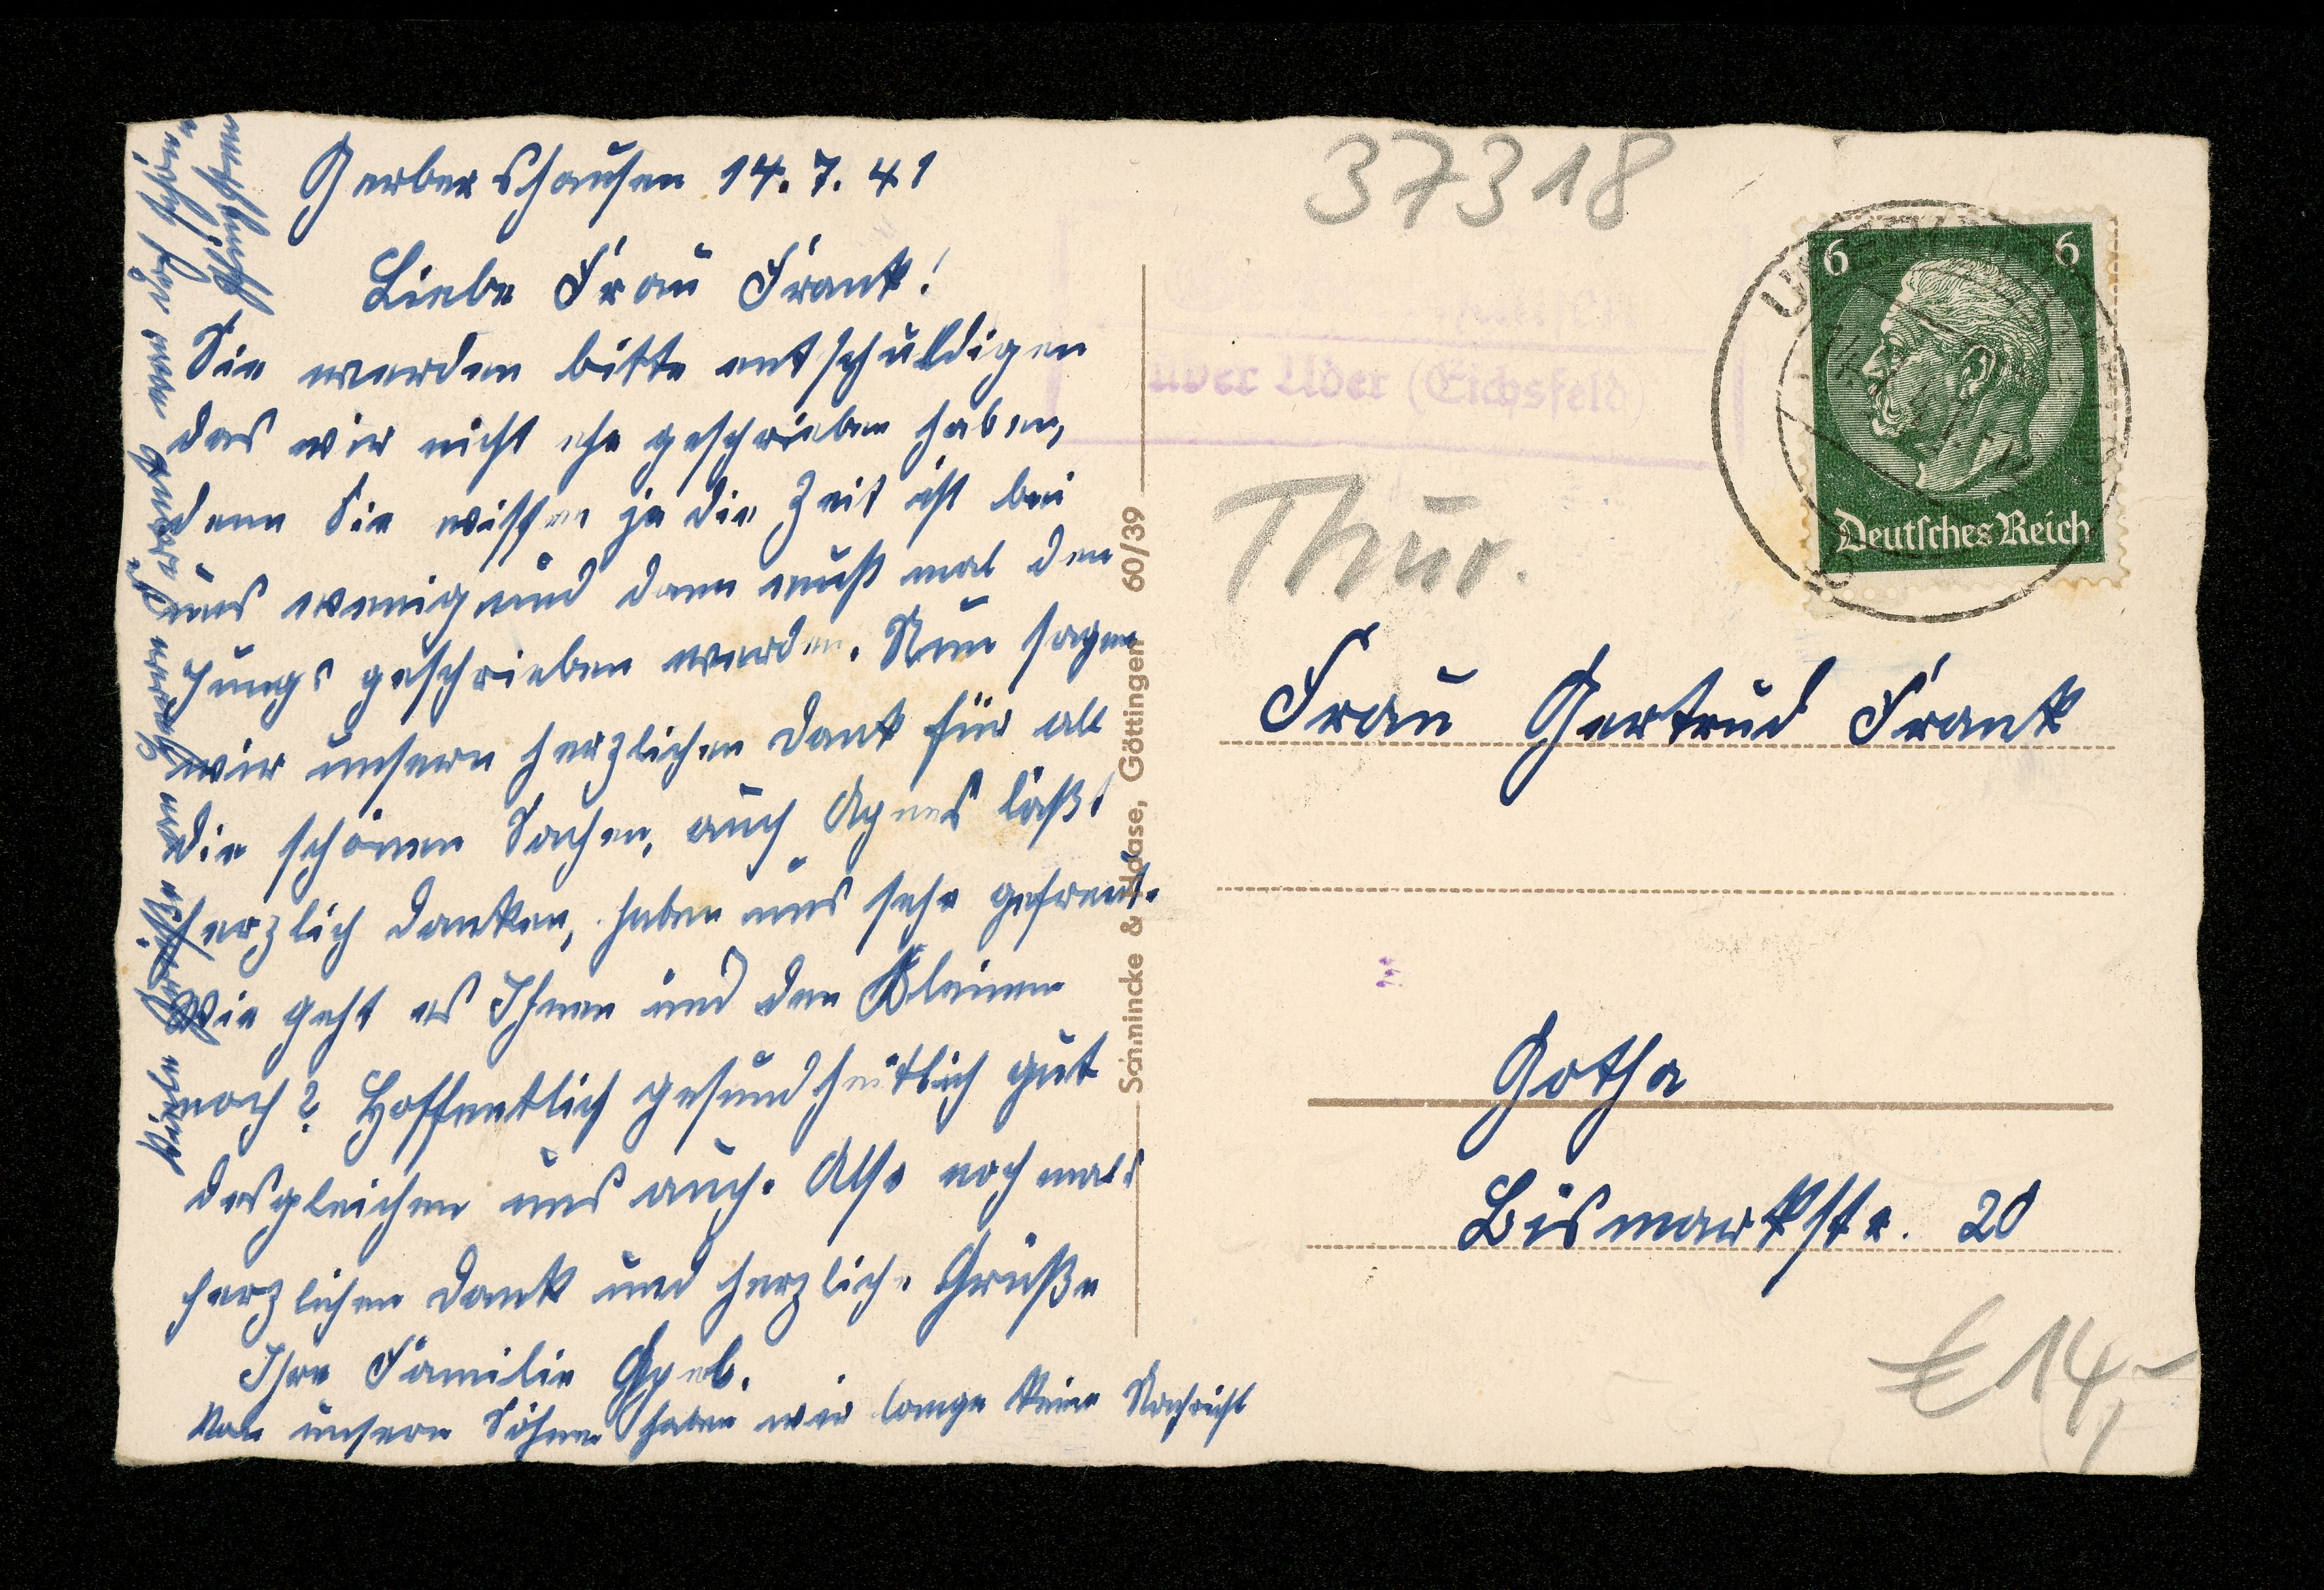 Gerbershausen 14.7.41
Liebe Frau Frank!
Sie werden bitte entschuldigen
das wir nicht ehe geschrieben haben,
denn Sie wissen ja die Zeit ist bei
uns wenig und dann muß mal den
Jungs geschrieben werden. Nun sagen
wir unsern herzlichen Dank für all
die schönen Sachen, auch Agnes läßt
herzlich danken, haben uns sehr gefreut.
Wie geht es Ihnen und den Kleinen
noch? Hoffentlich gesundheitlich gut
desgleichen uns auch. Also nochmals
herzlichen Dank und herzliche Grüße
Ihre Familie
Von unsern Söhnen haben wir lange keine Nachricht
viele
37318
über Uder (Eichsfeld)
Thür.
6 6
Deutsches Reich
Frau Gertrud Frank
Gotha
Bismarkstr. 20
€ 14,-
Schmincke & Haase, Göttingen 60/39